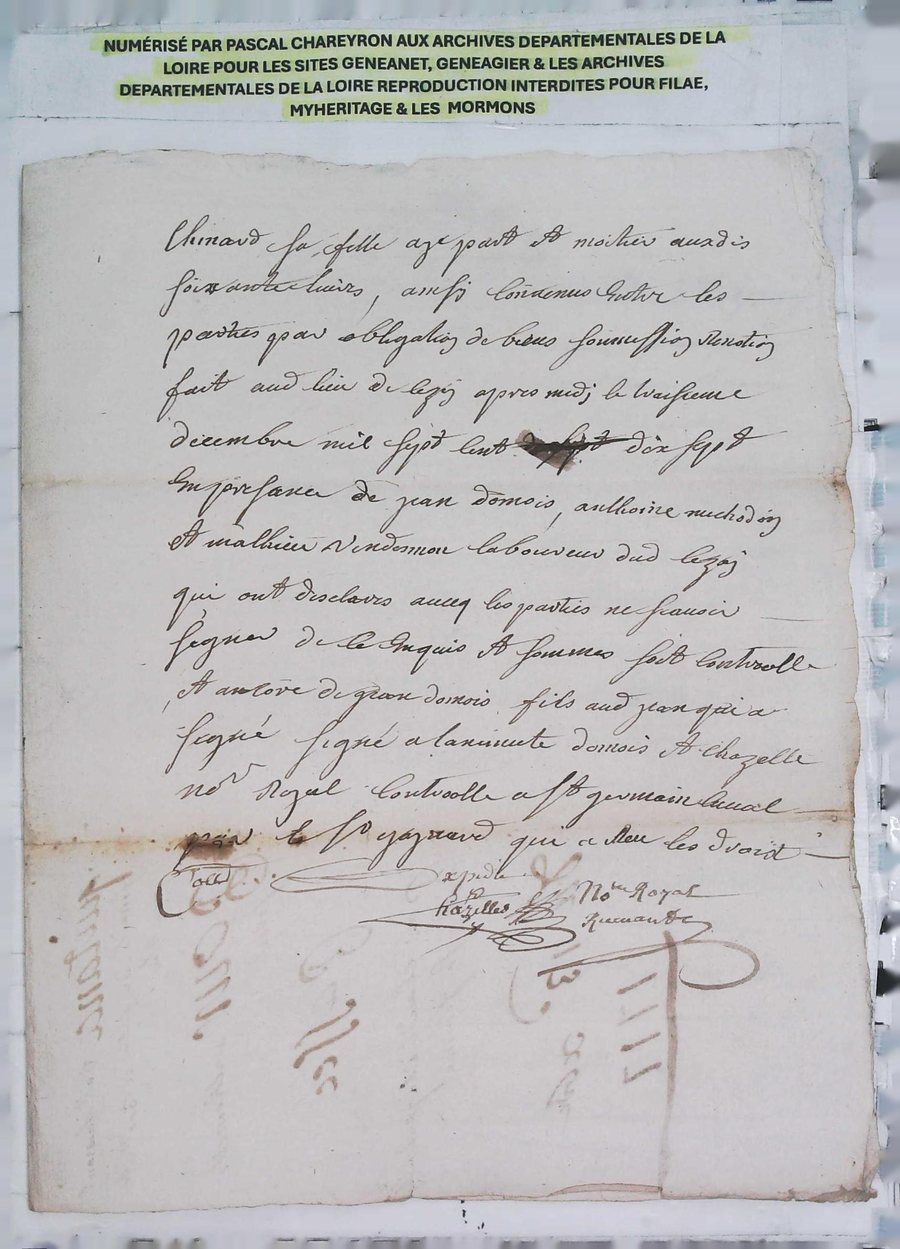 NUMÉRISÉ PAR PASCAL CHAREYRON AUX ARCHIVES DEPARTEMENTALES DE LA
LOIRE POUR LES SITES GENEANET, GENEAGIER & LES ARCHIVES
DEPARTEMENTALES DE LA LOIRE REPRODUCTION INTERDITES POUR FILAE,
MYHERITAGE & LES MORMONS
Chinard sa fille age part et moitier auxdis
soixante livres, ainsi convenus entre les
parties par obligation de biens soumission
fait aud lieu de lezij apres midj le traisieme
decembre mil sept cent dix sept
En presance de jean domois, anthoine
et mathieu Vindemon laboureur dud lezij
qui ont desclares avecq les parties ne scavoir
signer de ce Enquis et sommes soit controolle
et ancore de jean domois fils aud jean qui a
signé signé a la minute domois et Chazelle
no.re Royal Controolle a st germain laval
par le Sr gagnard qui a Reu les droict
Expedie
Chazelles No.re Royal